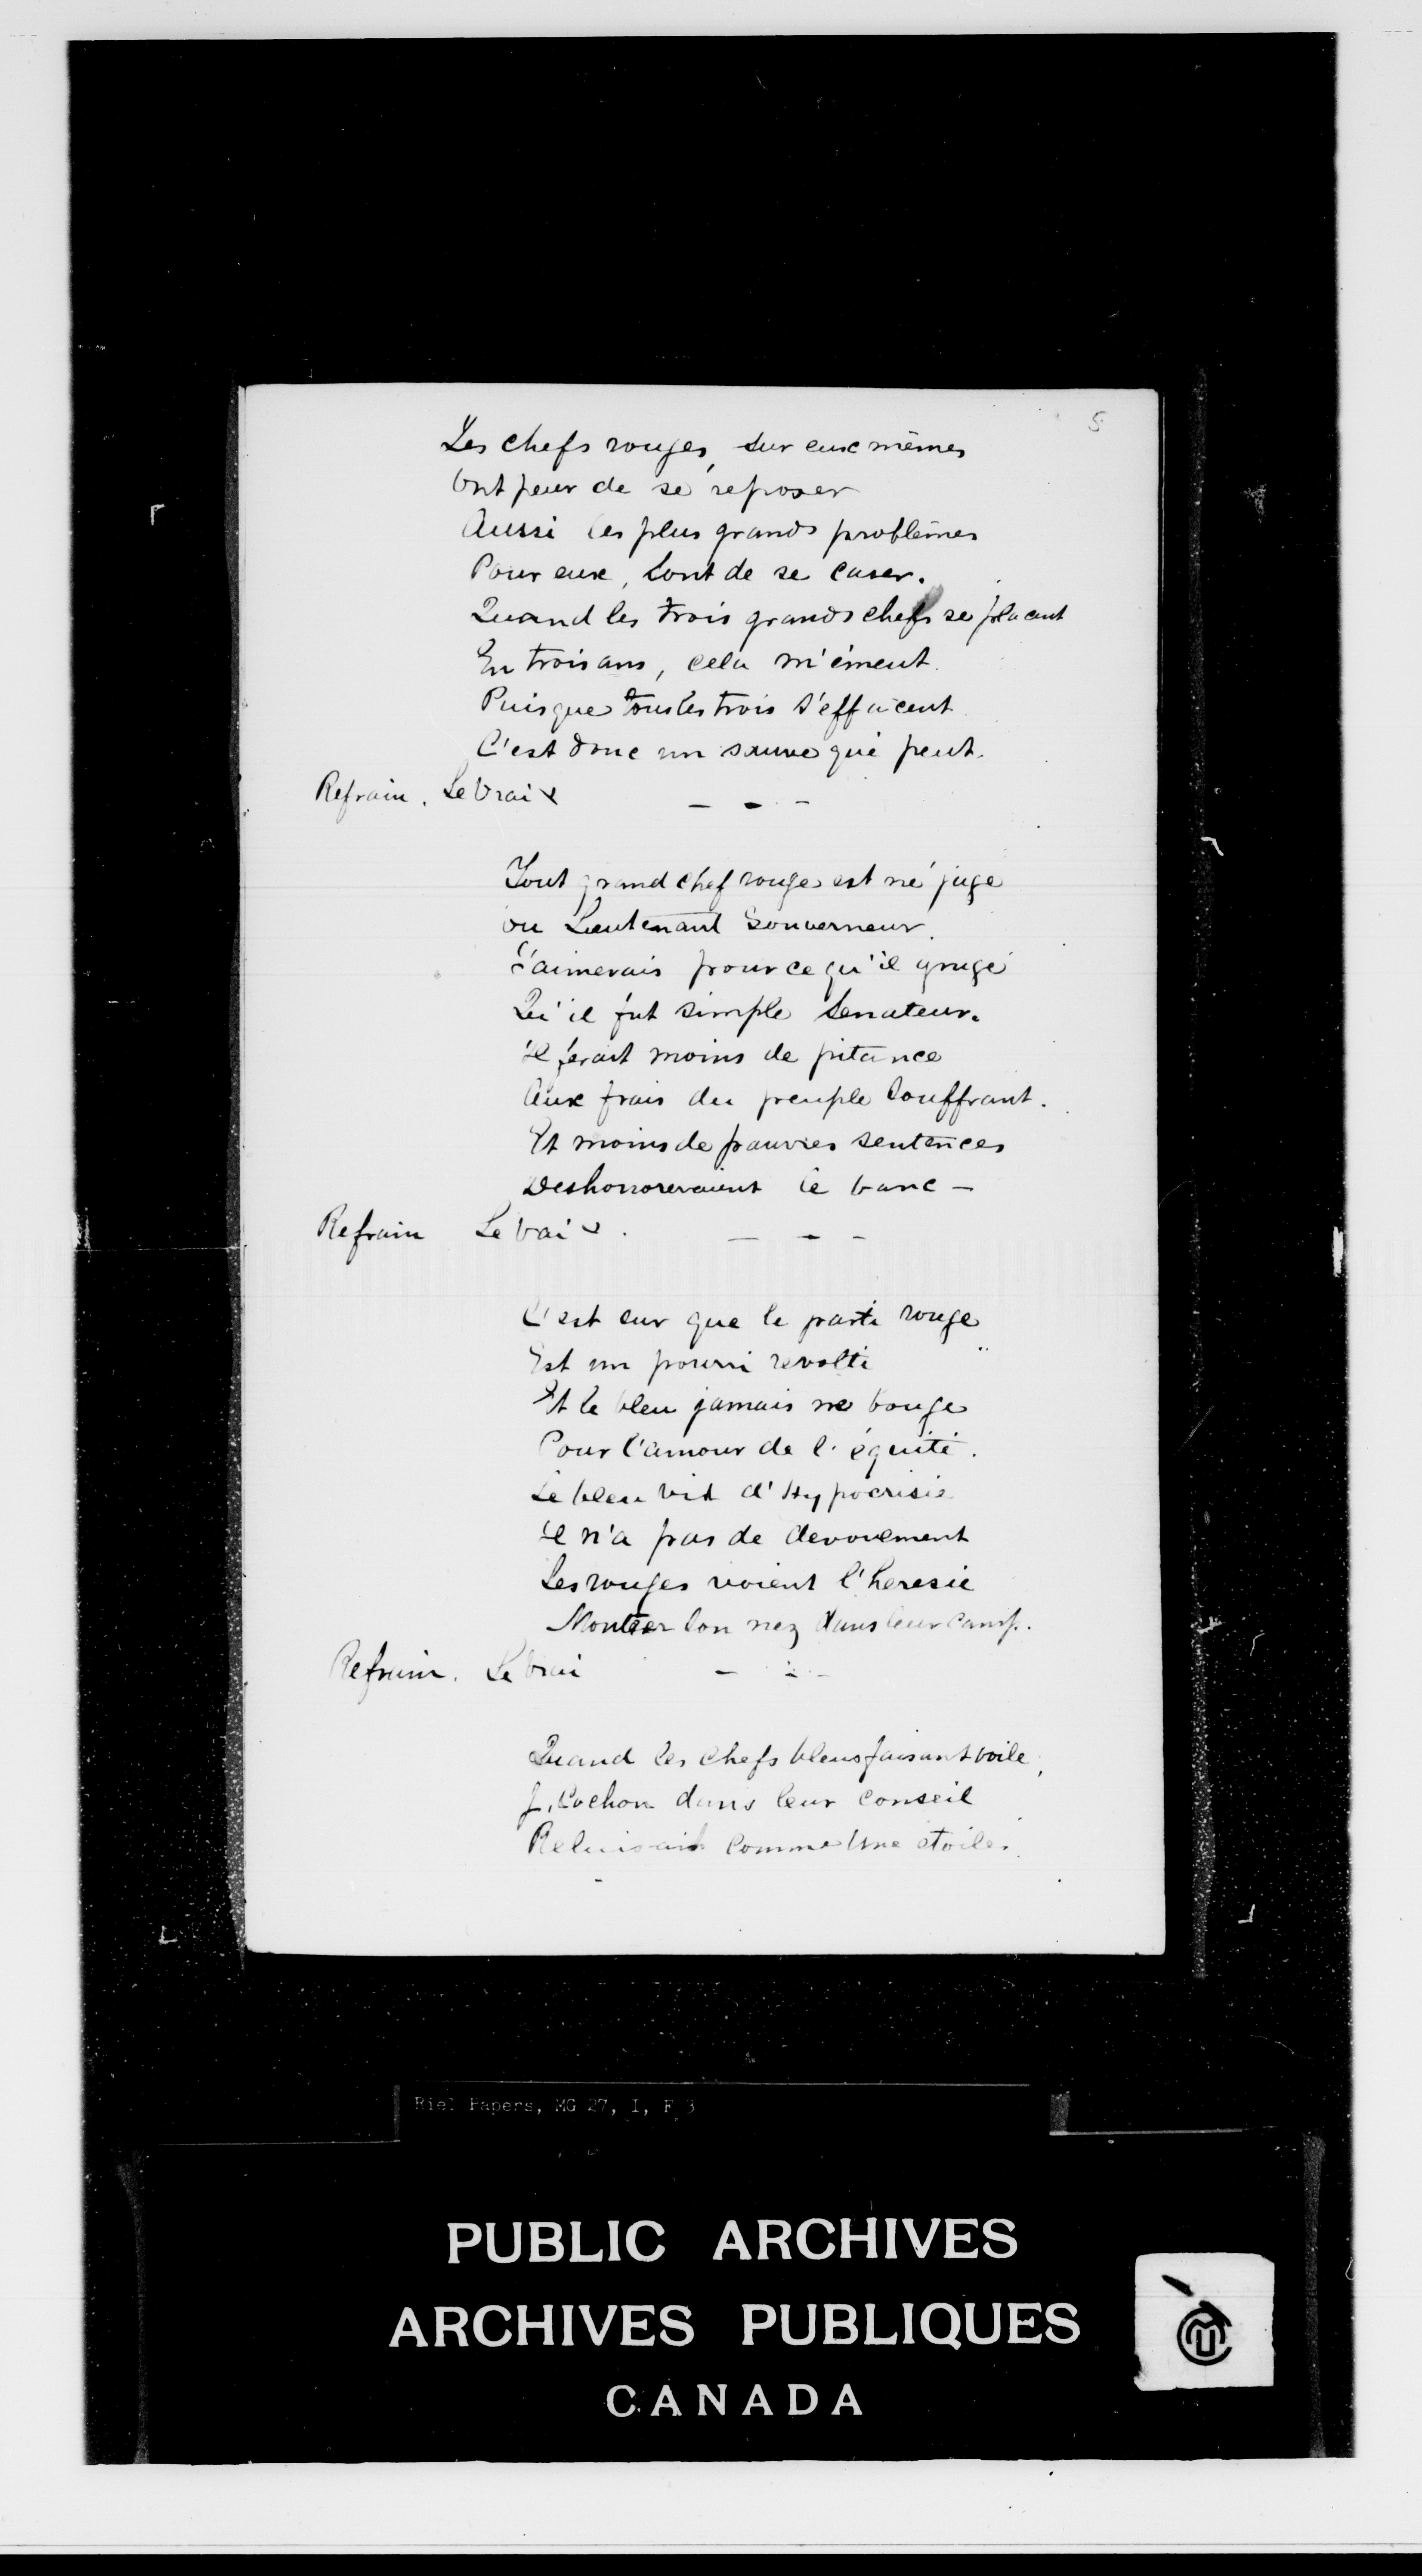 5
Les chefs rouges, sur eux mêmes
Ont peur de se reposer
Aussi les plus grands problêmes
Pour eux, sont de se caser.
Quand les trois grands chefs se placent
En trois ans, cela m'émeut.
Puisque tous les trois s'effacent
C'est donc un sauve qui peut.
Refrain. Le vrai x
— - -
Tout grand chef rouge est né juge
ou Lieutenant Gouverneur.
J'aimerais pour ce qu'il gruge
Qu'il fut simple Senateur.
Il ferait moins de pitance
Aux frais du peuple souffrant.
Et moins de pauvres sentences
Deshonoreraient le banc —
Refrain Le vai x.
— - -
C'est sur que le parti rouge
Est un pourri revolté
Et le bleu jamais ne bouge
Pour l'amour de l'équité.
Le bleu vit d'Hypocrisie
Il n'a pas de devouement
Les rouges voient l'heresie
Montrer son nez dans leur camp.
Refrain. Le vrai
— - -
Quand les chefs bleus faisant voile,
J. Cochon dans leur conseil
Reluisait comme une étoile.
Riel Papers, MG 27, I, F 3
PUBLIC ARCHIVES
ARCHIVES PUBLIQUES
CANADA